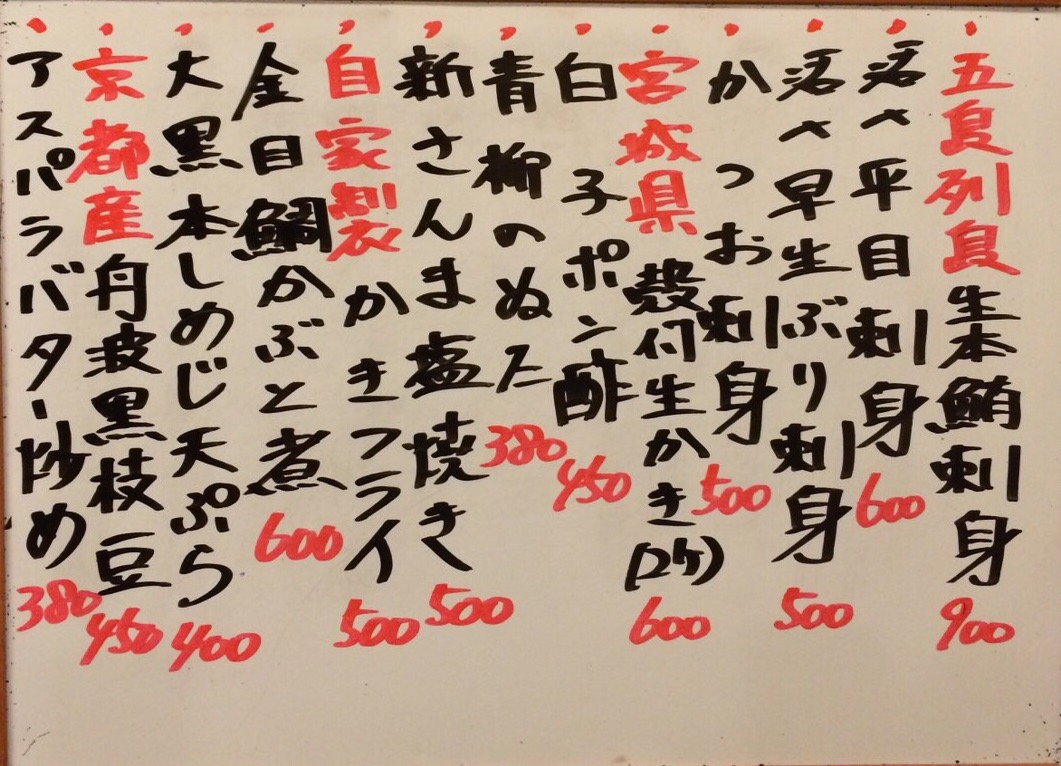 ・五島列島生本鮪刺身 900
・活〆平目刺身 600
・活〆早生ぶり刺身 500
・かつお刺身 500
・宮城県殻付生かき(2ケ) 600
・白子ポン酢 450
・青柳のぬた 380
・新さんま塩焼き 500
・自家製かきフライ 500
・金目鯛かぶと煮 600
・大黒本しめじ天ぷら 400
・京都産丹波黒枝豆 450
・アスパラバター炒め 380